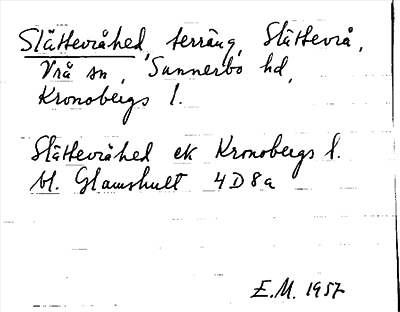 Slättevråhed, terräng, Slättevrå,
Vrå sn, Sunnerbo hd,
Kronobergs l.
Slättevråhed ek Kronobergs l.
bl. Glamshult 4D8a
E.M. 1957